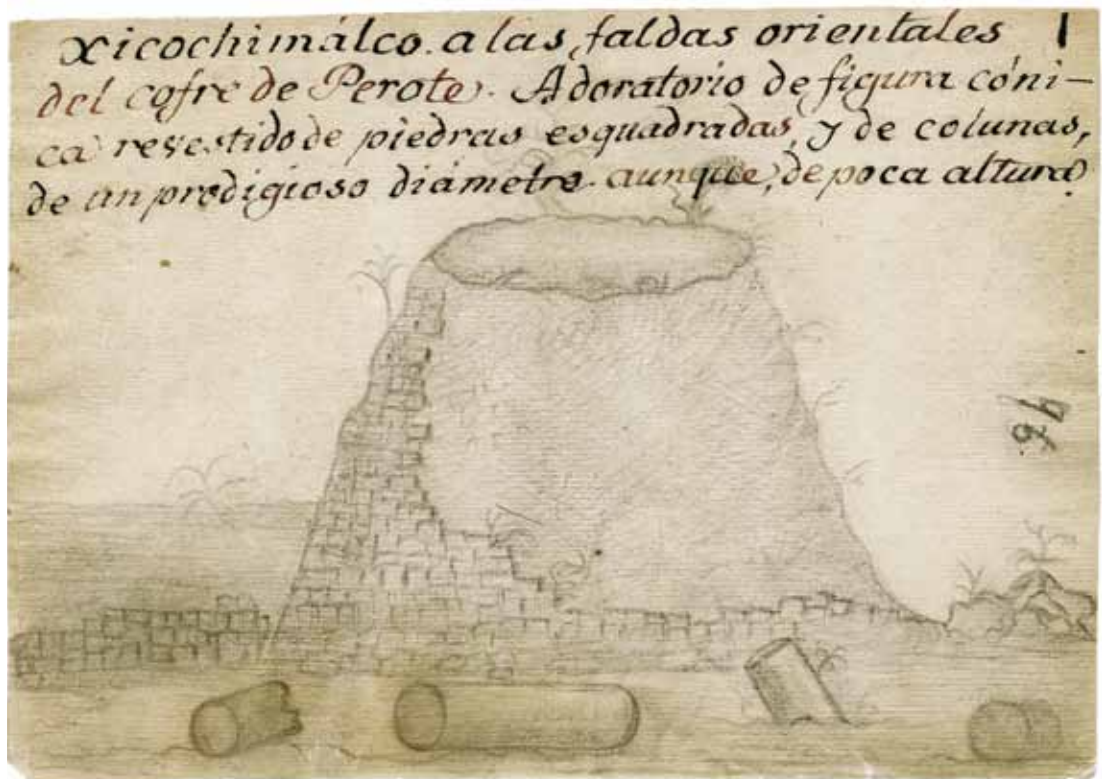 xicochimálco. a las faldas orientales 1
del cofre de Perote. Adoratorio de figura cóni-
ca revestido de piedras esquadradas, y de colunas,
de un prodigioso diámetro. aunque, de poca altura
96.